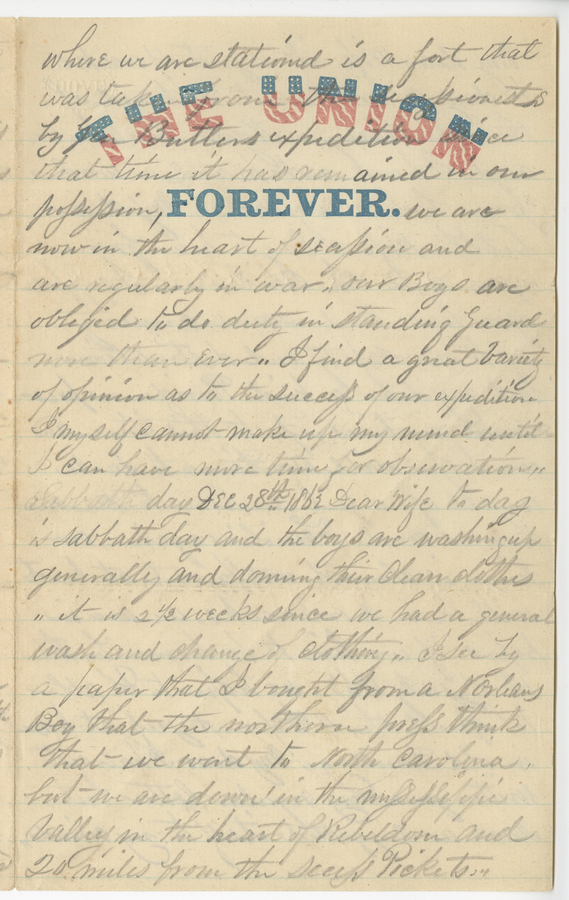 where we are stationd is a fort that
THE UNION
was taken from the secessionests
by the Butlers expedition since
that time it has remained in our
possession, FOREVER. we are
now in the heart of seassion and
are regularly in war,, our Boys are
obliged to do duty in standing Guard
more than ever,, I find a great variety
of opinion as to the success of our expedition
I myself cannot make up my mind until
I can have more time for observation,,
Sabbath day DEC 28th 1862 Dear Wife to day
is sabbath day and the boys are washing up
generally and doning their clean clothes
,, it is 2 1/2 weeks since we had a general
wash and change of clothing,, I see by
a paper that I bought from a N Orleans
Boy that the northern press think
that we went to North Carolina,
but we are down in the missessippi
Valley in the heart of Rebeldom and
20 miles from the secess Pickets,,